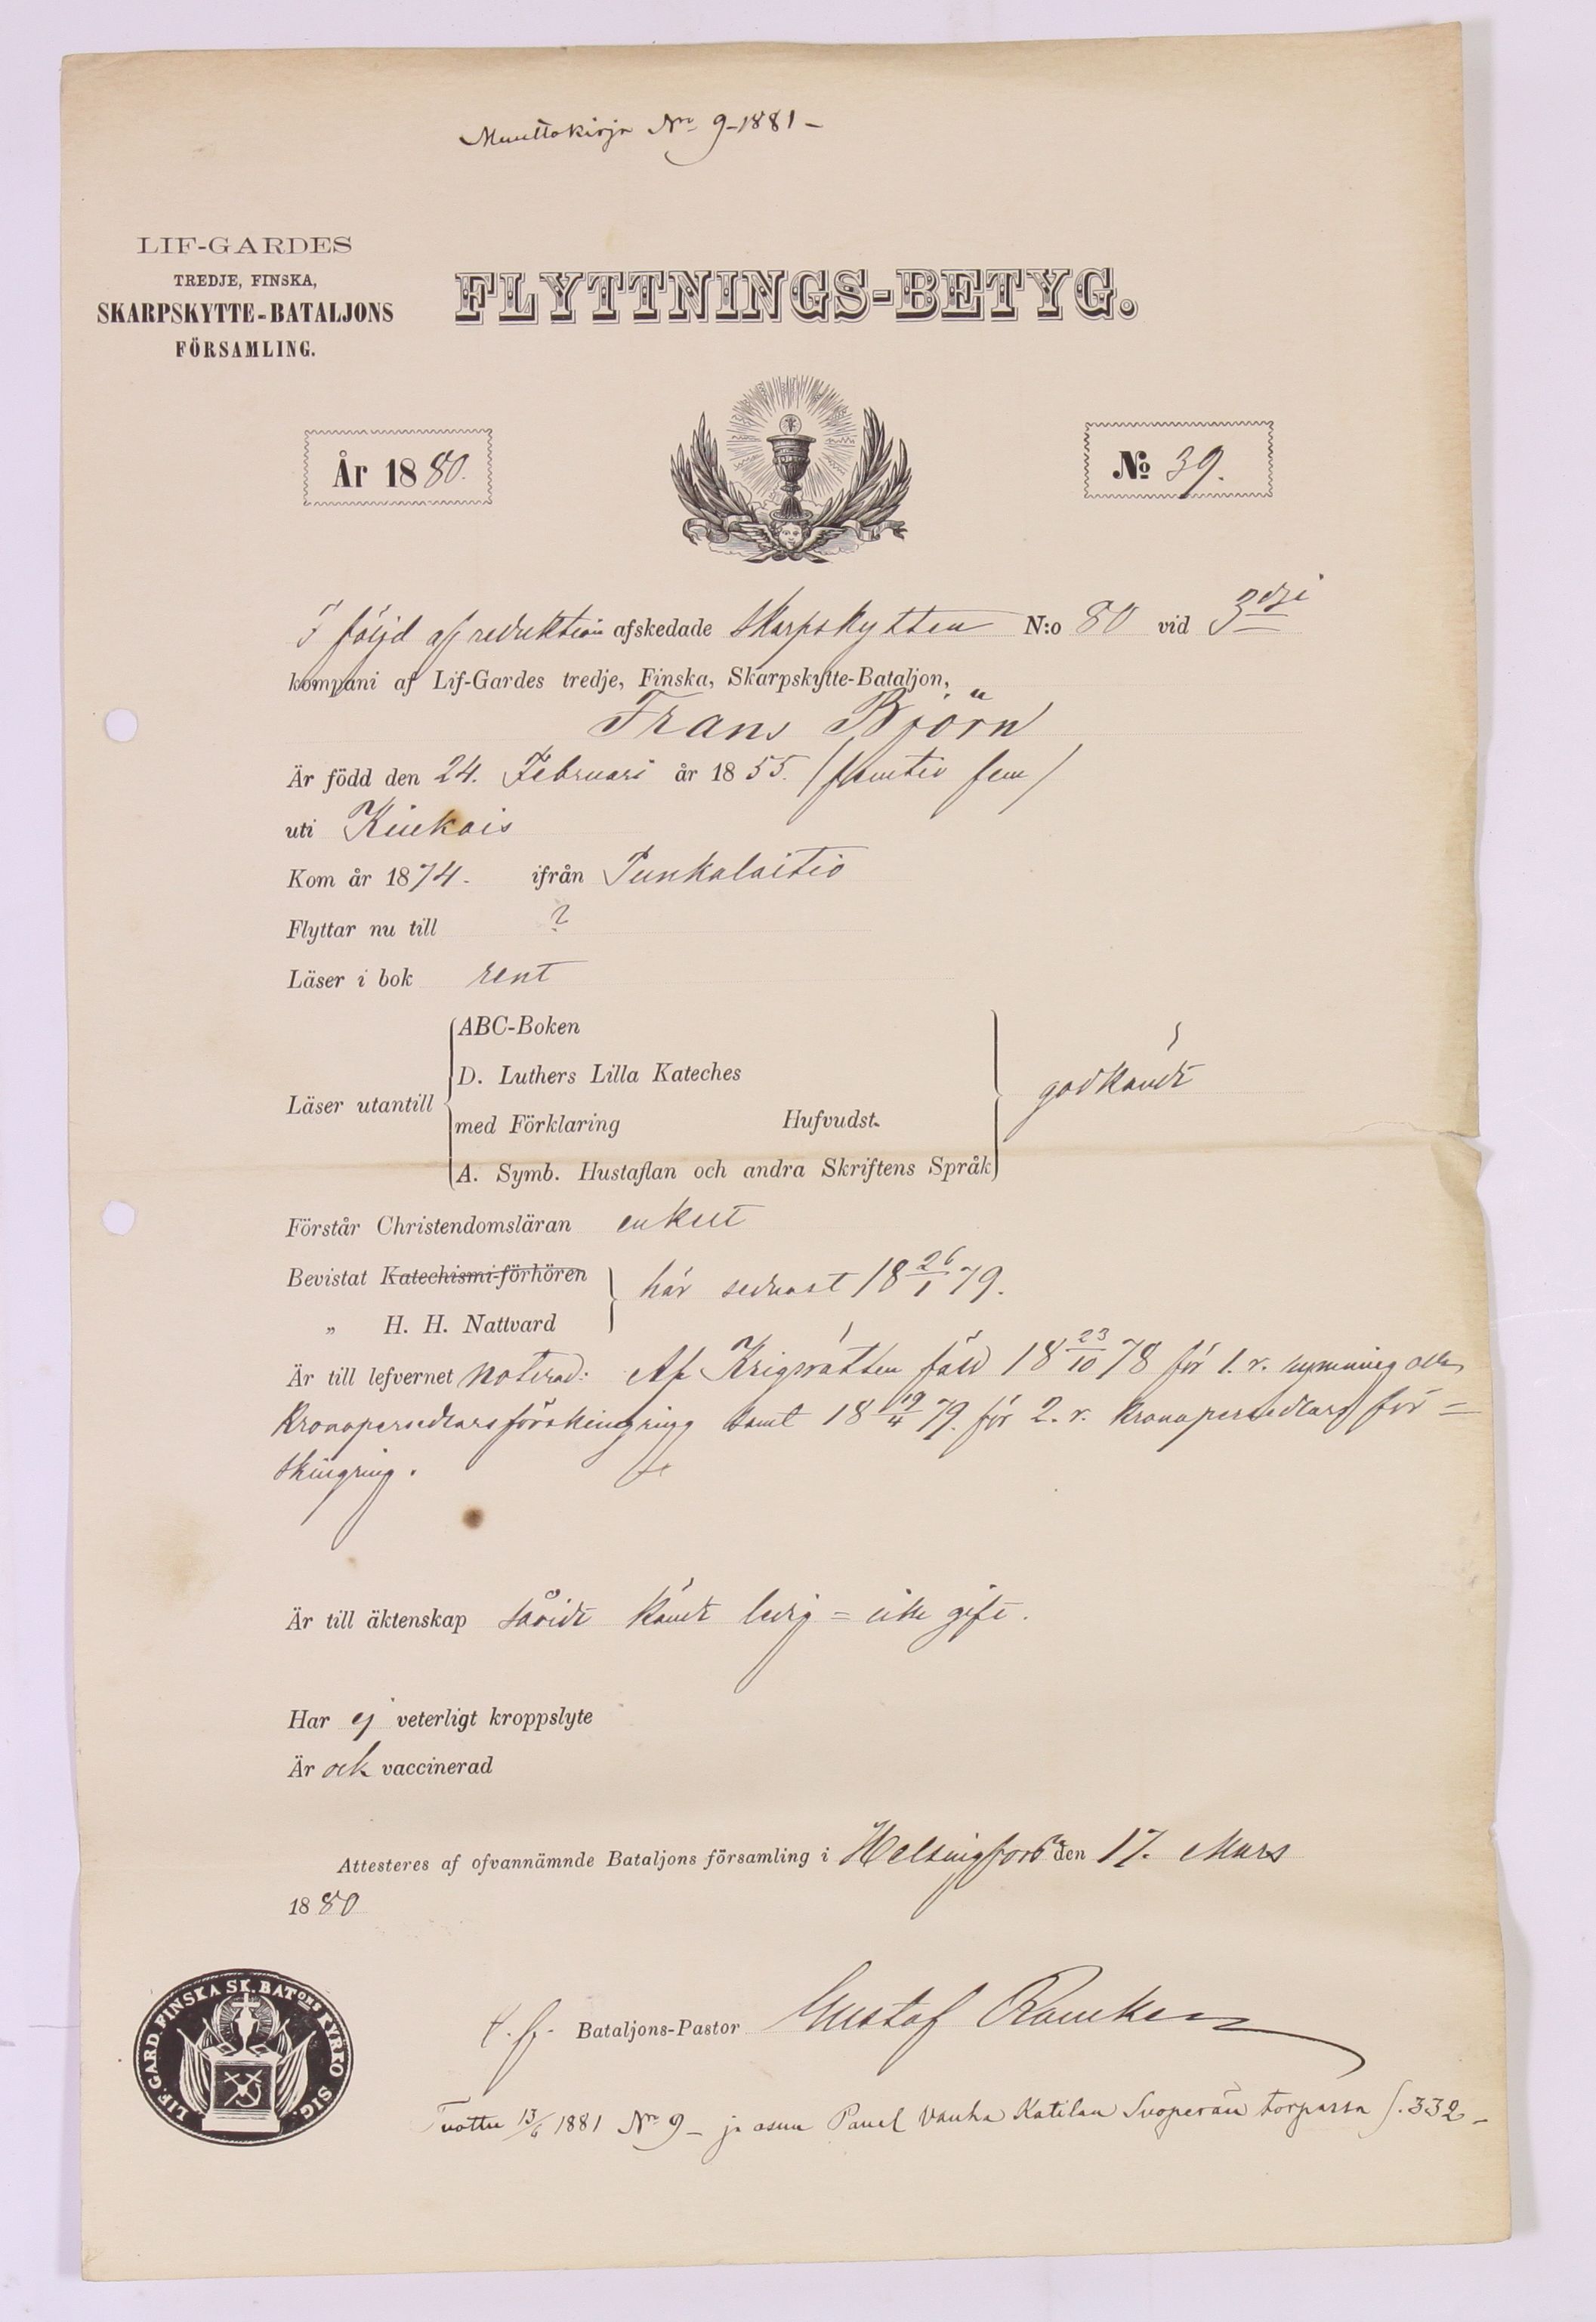 Muuttokirja No 9-1881-
LIF-GARDES
TREDJE, FINSKA,
SKARPSKYTTE-BATALJONS
FÖRSAMLING.
FLYTTNINGS-BETYG.
År 1880.
No 39.
I följd af reduktion afskedade Skarpskytten N:o 80 vid 3dje
kompani af Lif-Gardes tredje, Finska, Skarpskytte-Bataljon,
Frans Björn
Är född den 24. Februari år 1855. /femtio fem/
uti Kiukais
Kom år 1874. ifrån Punkalaitio
Flyttar nu till ?
Läser i bok rent
Läser utantill
ABC-Boken
D. Luthers Lilla Kateches
med Förklaring Hufvudst.
A. Symb. Hustaflan och andra Skriftens Språk
godkändt
Förstår Christendomsläran enkelt
Bevistat Katechismi-förhören
„ H. H. Nattvard
här sednast 18 26/1 79.
Är till lefvernet noterad: Af Krigsrätten fäld 18 23/10 78 för 1. r. rymning och
Kronopersedlars förskingring samt 18 19/4 79. för 2. r. kronopersedlars för=
skingring.
Är till äktenskap såvidt kändt ledig = icke gift.
Har ej veterligt kroppslyte
Är ock vaccinerad
Attesteres af ofvannämnde Bataljons församling i Helsingfors den 17. Mars
1880
Bataljons-Pastor Gustaf Rancken
LIF. GARD. FINSKA SK. BATONS KYRKO SIG.
Tuottu 13/6 1881 No 9 - ja asuu Panel Vanha Katilan Suoperän torpassa S. 332-